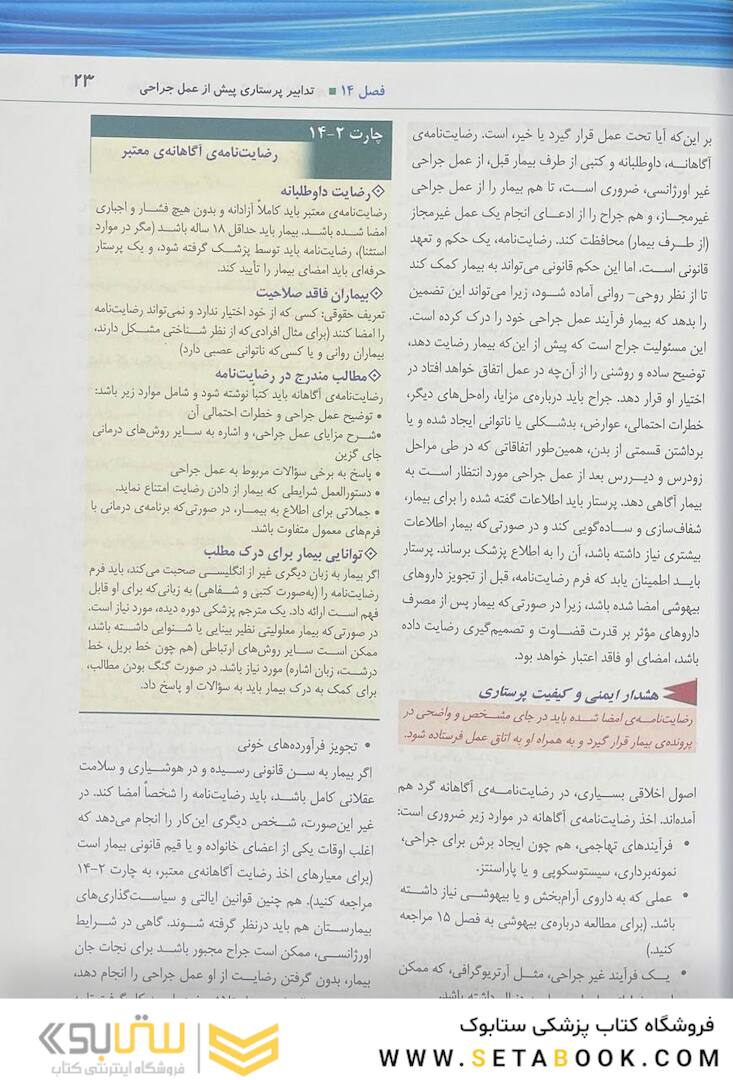 فصل ۱۴ ■ تدابیر پرستاری پیش از عمل جراحی
۲۳
بر این‌که آیا تحت عمل قرار گیرد یا خیر، است. رضایت‌نامه‌ی
آگاهانه، داوطلبانه و کتبی از طرف بیمار قبل، از عمل جراحی
غیر اورژانسی، ضروری است، تا هم بیمار را از عمل جراحی
غیرمجاز، و هم جراح را از ادعای انجام یک عمل غیرمجاز
(از طرف بیمار) محافظت کند. رضایت‌نامه، یک حکم و تعهد
قانونی است. اما این حکم قانونی می‌تواند به بیمار کمک کند
تا از نظر روحی- روانی آماده شود، زیرا می‌تواند این تضمین
را بدهد که بیمار فرآیند عمل جراحی خود را درک کرده است.
این مسئولیت جراح است که پیش از این‌که بیمار رضایت دهد،
توضیح ساده و روشنی را از آن‌چه در عمل اتفاق خواهد افتاد در
اختیار او قرار دهد. جراح باید درباره‌ی مزایا، راه‌حل‌های دیگر،
خطرات احتمالی، عوارض، بدشکلی یا ناتوانی ایجاد شده و یا
برداشتن قسمتی از بدن، همین‌طور اتفاقاتی که در طی مراحل
زودرس و دیررس بعد از عمل جراحی مورد انتظار است به
بیمار آگاهی دهد. پرستار باید اطلاعات گفته شده را برای بیمار،
شفاف‌سازی و ساده‌گویی کند و در صورتی‌که بیمار اطلاعات
بیشتری نیاز داشته باشد، آن را به اطلاع پزشک برساند. پرستار
باید اطمینان یابد که فرم رضایت‌نامه، قبل از تجویز داروهای
بیهوشی امضا شده باشد، زیرا در صورتی‌که بیمار پس از مصرف
داروهای مؤثر بر قدرت قضاوت و تصمیم‌گیری رضایت داده
باشد، امضای او فاقد اعتبار خواهد بود.
هشدار ایمنی و کیفیت پرستاری
رضایت‌نامه‌ی امضا شده باید در جای مشخص و واضحی در
پرونده‌ی بیمار قرار گیرد و به همراه او به اتاق عمل فرستاده شود.
اصول اخلاقی بسیاری، در رضایت‌نامه‌ی آگاهانه گرد هم
آمده‌اند. اخذ رضایت‌نامه‌ی آگاهانه در موارد زیر ضروری است:
• فرآیندهای تهاجمی، هم چون ایجاد برش برای جراحی،
نمونه‌برداری، سیستوسکوپی و یا پاراسنتز.
• عملی که به داروی آرام‌بخش و یا بیهوشی نیاز داشته
باشد. (برای مطالعه درباره‌ی بیهوشی به فصل ۱۵ مراجعه
کنید.)
• یک فرآیند غیر جراحی، مثل آرتریوگرافی، که ممکن
چارت ۲-۱۴
رضایت‌نامه‌ی آگاهانه‌ی معتبر
رضایت داوطلبانه
رضایت‌نامه‌ی معتبر باید کاملاً آزادانه و بدون هیچ فشار و اجباری
امضا شده باشد. بیمار باید حداقل ۱۸ ساله باشد (مگر در موارد
استثنا)، رضایت‌نامه باید توسط پزشک گرفته شود، و یک پرستار
حرفه‌ای باید امضای بیمار را تأیید کند.
بیماران فاقد صلاحیت
تعریف حقوقی: کسی که از خود اختیار ندارد و نمی‌تواند رضایت‌نامه
را امضا کنند (برای مثال افرادی‌که از نظر شناختی مشکل دارند،
بیماران روانی و یا کسی‌که ناتوانی عصبی دارد)
مطالب مندرج در رضایت‌نامه
رضایت‌نامه‌ی آگاهانه باید کتباً نوشته شود و شامل موارد زیر باشد:
• توضیح عمل جراحی و خطرات احتمالی آن
• شرح مزایای عمل جراحی، و اشاره به سایر روش‌های درمانی
جای گزین
• پاسخ به برخی سؤالات مربوط به عمل جراحی
• دستورالعمل شرایطی که بیمار از دادن رضایت امتناع نماید.
• جملاتی برای اطلاع به بیمار، در صورتی‌که برنامه‌ی درمانی با
فرم‌های معمول متفاوت باشد.
توانایی بیمار برای درک مطلب
اگر بیمار به زبان دیگری غیر از انگلیسی صحبت می‌کند، باید فرم
رضایت‌نامه را (به‌صورت کتبی و شفاهی) به زبانی‌که برای او قابل
فهم است ارائه داد. یک مترجم پزشکی دوره دیده، مورد نیاز است.
در صورتی‌که بیمار معلولیتی نظیر بینایی یا شنوایی داشته باشد،
ممکن است سایر روش‌های ارتباطی (هم چون خط بریل، خط
درشت، زبان اشاره) مورد نیاز باشد. در صورت گنگ بودن مطالب،
برای کمک به درک بیمار باید به سؤالات او پاسخ داد.
• تجویز فرآورده‌های خونی
اگر بیمار به سن قانونی رسیده و در هوشیاری و سلامت
عقلانی کامل باشد، باید رضایت‌نامه را شخصاً امضا کند. در
غیر این‌صورت، شخص دیگری این‌کار را انجام می‌دهد که
اغلب اوقات یکی از اعضای خانواده و یا قیم قانونی بیمار است
(برای معیارهای اخذ رضایت آگاهانه‌ی معتبر، به چارت ۲-۱۴
مراجعه کنید). هم چنین قوانین ایالتی و سیاست‌گذاری‌های
بیمارستان هم باید درنظر گرفته شوند. گاهی در شرایط
اورژانسی، ممکن است جراح مجبور باشد برای نجات جان
بیمار، بدون گرفتن رضایت از او عمل جراحی را انجام دهد،
فروشگاه کتاب پزشکی ستابوک
WWW.SETABOOK.COM
ستابوک
فروشگاه اینترنتی کتاب